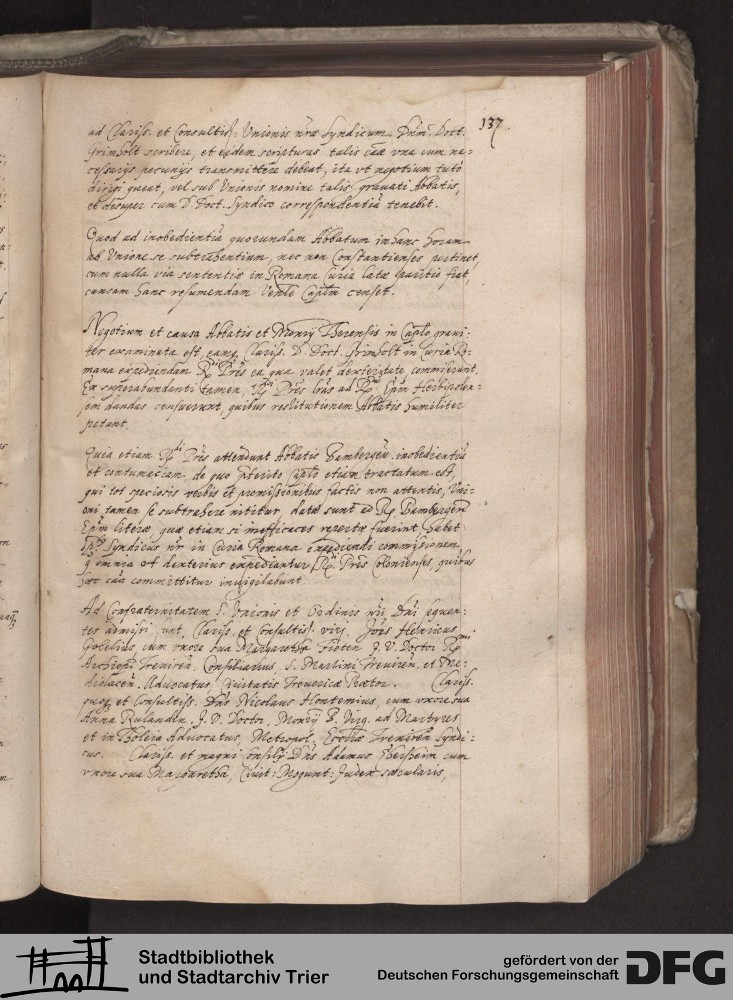 137
ad Clariss. et Consultiss: Unionis nrae Syndicum Dnm Doct.
Grimholt scribere, et eidem scripturas talis cae vna cum ne=
cessarijs pecunijs transmittere debeat, ita vt negotium tuto
dirigi queat, vel sub Unionis nomine talis gravati Abbatis,
et desuper cum D. Doct. Syndico correspondentia tenebit.
Quod ad inobedientia quorundam Abbatum in hanc horam
ab Unione se subtrahentium, nec non Constantienses pertinet,
cum nulla via sententiae in Romana Curia latae paritio fiat,
causam hanc resumendam Venle Caplm censet.
Negotium et causa Abbatis et Monrij Therensis in Caplo gravi=
ter examinata est, eamq Clariss. D. Doct. Grimholt in Curia Ro=
mana expediendam Rdi Pres ea qua valet dexteritate commiserunt.
Ex superabundanti tamen, Rdi Pres lras ad Rm Epm Herbipolen=
sem dandas censuerunt quibus restitutionem Abbatis humiliter
petant.
Quia etiam Rdi Pres attendunt Abbatis Bambergen inobedientia
et contumaciam, de quo pterito Caplo etiam tractatum est,
qui tot speciosis verbis et promissionibus factis non attentis, Uni=
oni tamen se subtrahere nititur, datae sunt ad R. Bambergen
Epm literae, quae etiam si inefficaces repertae fuerint, habet
Syndicus nr in Curia Romana expediendi commissionem
q omnia vt dexterius expediantur Rdi Pres Colonienses, quibus
haec caa committitur invigilabunt.
Ad Confraternitatem S. Unionis et Ordinis nri Dni sequen=
tes admissi sunt, Clariss. et Consultiss. viri Joes Henricus
Gobelius, cum vxore sua Margaretha Fisten J. V. Doctor Rmi
Archiepi Treviren. Consiliarius, S. Maximi Treviren. et Me=
diolacen. Advocatus, Civitatis Trevericae Praetor. Clariss.
quoq et Consultiss. Dns Nicolaus Hontemius, cum vxore sua
Anna Rulanden. J. V. Doctor, Monrij B. Virg. ad Martyres
et in Tholeia Advocatus, Metropol. Ecclae Treviren Syndi=
cus. Clariss. et magni Consilij Dns Adamus cum
vxore sua Margaretha, Civit: Mogunt: Judex saecularis,
Stadtbibliothek
und Stadtarchiv Trier
gefördert von der
Deutschen Forschungsgemeinschaft
DFG